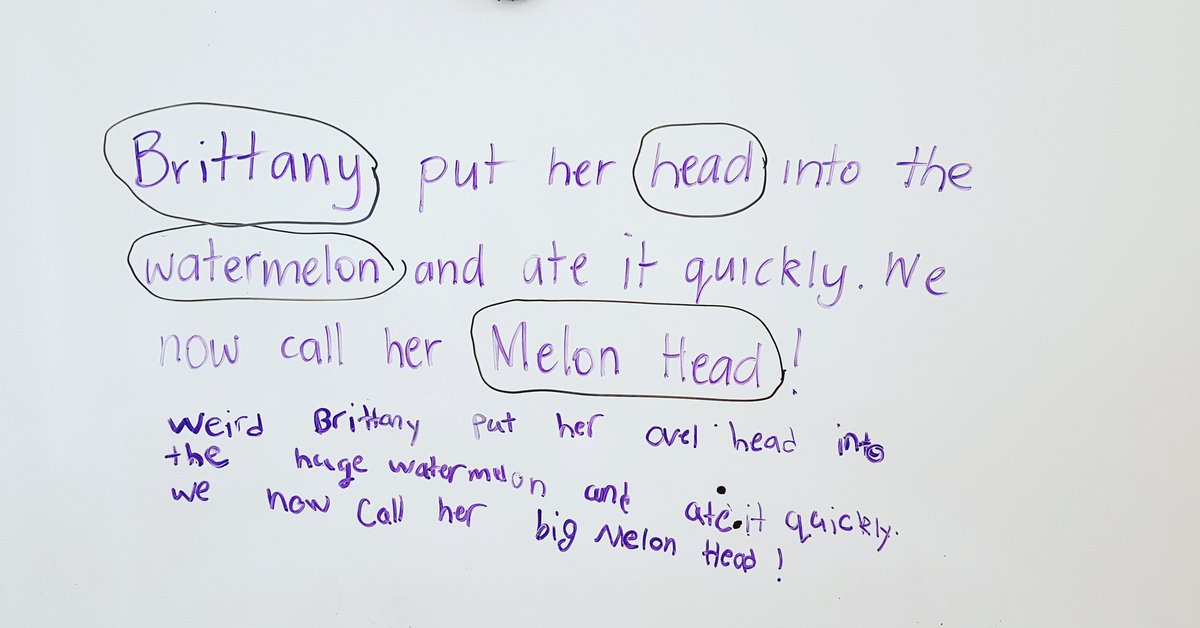 Brittany put her head into the
watermelon and ate it quickly. We
now call her Melon Head!
weird Brittany put her ovel head into
the huge watermelon and ate it quickly.
we now call her big Melon Head!